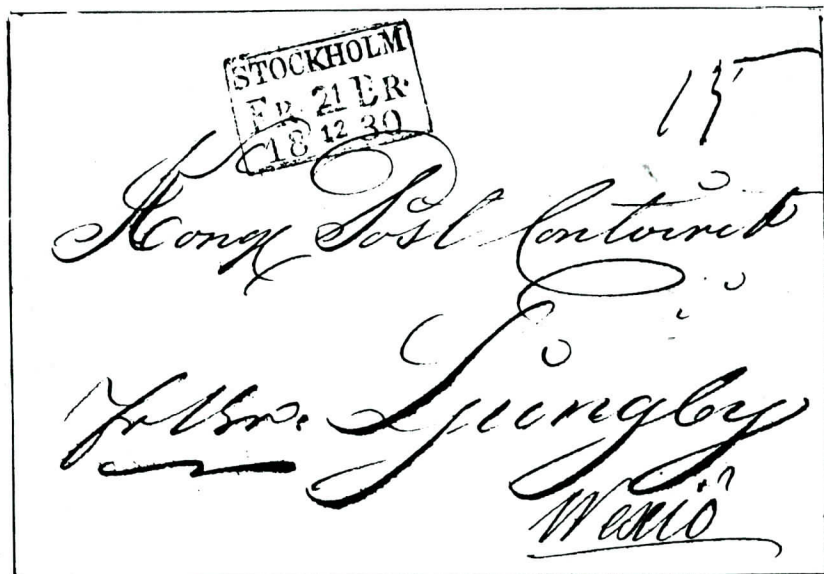 STOCKHOLM
FR. 21 BR.
18 12 30
15
Kongl Post Contoiret
Fr Br. Ljungby
Wexiö